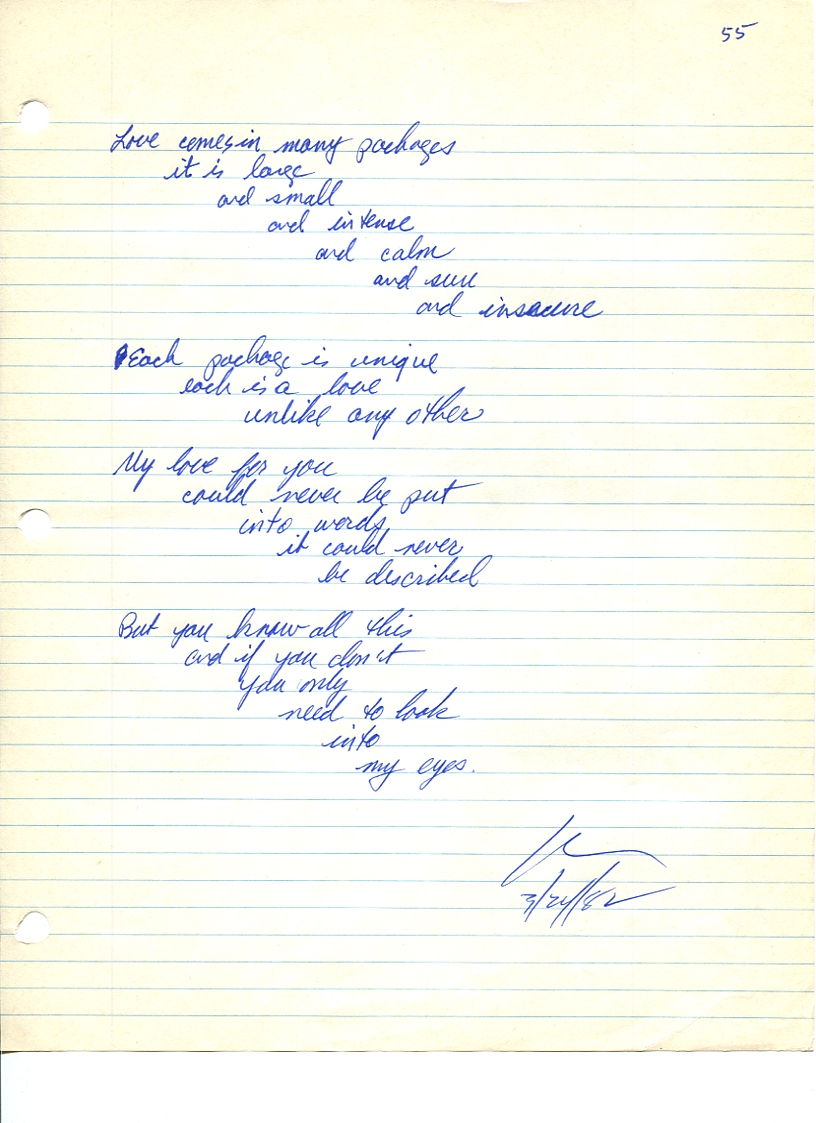 55
Love comes in many packages
it is large
and small
and intense
and calm
and sure
and insecure
Each package is unique
each is a love
unlike any other
My love for you
could never be put
into words,
it could never
be described
But you know all this
and if you don't
you only
need to look
into
my eyes.